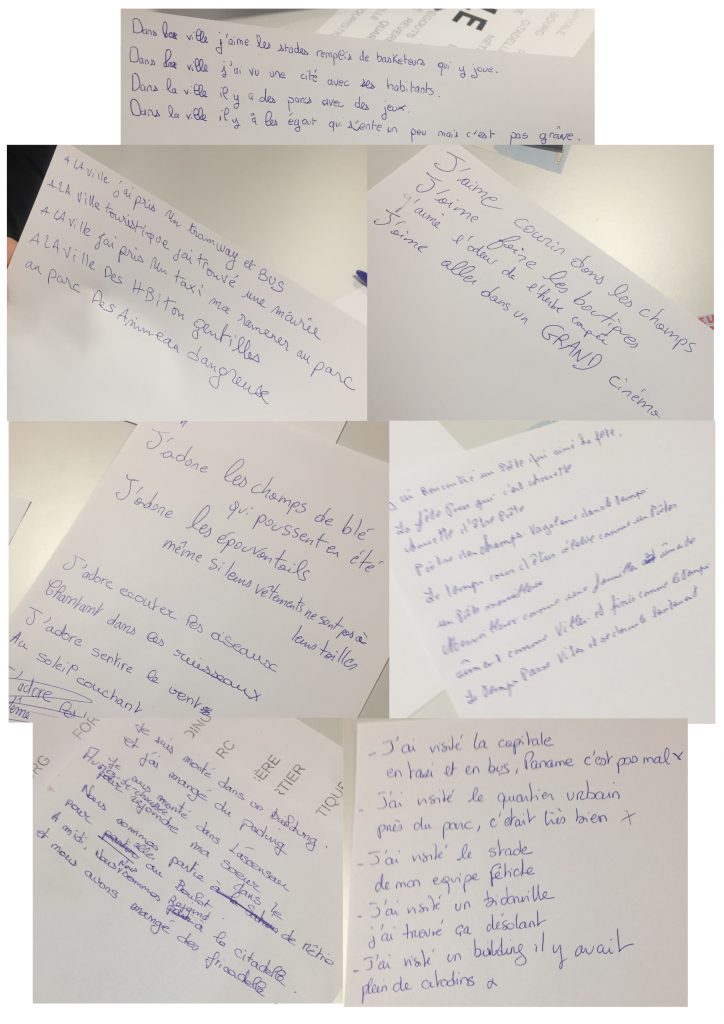 Dans la ville j'aime les stades remplis de basketeurs qui y joue.
Dans la ville j'ai vu une cité avec ses habitants.
Dans la ville il y a des parcs avec des jeux.
Dans la ville il y à les égout qui s'ente un peu mais c'est pas grâve.
A LA ville j'ai pris un tramway et BUS
A LA ville touristique j'ai trouvé une mairie
A LA ville j'ai pris un taxi ma ramener au parc
A LA ville Des HBiton gentilles
au parc Des Animeau dangreuse
J'aime courir dans les champs
J'aime faire les boutiques
j'aime l'odeur de l'herbe coupée
J'aime aller dans un GRAND cinéma
J'adore les champs de blé
qui poussent en été
J'adore les épouvantails
même si leurs vêtements ne sont pas à
leurs tailles
J'adore ecouter les aseaux
Chantant dans les ruisseaux
J'adore sentire le vent
Au soleil couchant
J'adore les
J'ai rencontré un Poète qui aime la fête,
La fête Pour qui c'est chouette
chouette d'être Poète
Poètre des champs dans le temps
Le temps d'être comme un Poètes
un Poète merveilleux
Merveilleux comme une famille
comme Villon et finis comme le temps
Le temps Passe Vite et
Je suis monté dans un building.
et j'ai mangé du pouding
Je suis monté dans L'ascenseur
pour rejoindre ma soeur
Nous sommes partie dans le métro
pour aller au Boulot.
A midi, Nous sommes à la citadelle
et nous avons mangé des fricadelle.
RG
FOR
DING
RC
IÈRE
RTIER
TIQUE
- J'ai visité la capitale
en taxi et en bus, Paname c'est pas mal
- J'ai visité le quartier urbain
près du parc, c'était très bien +
- J'ai visité le stade
de mon equipe fétiche
- J'ai visité un bidonville
j'ai trouvé ça désolant
- J'ai visité un building il y avait
plein de citadins